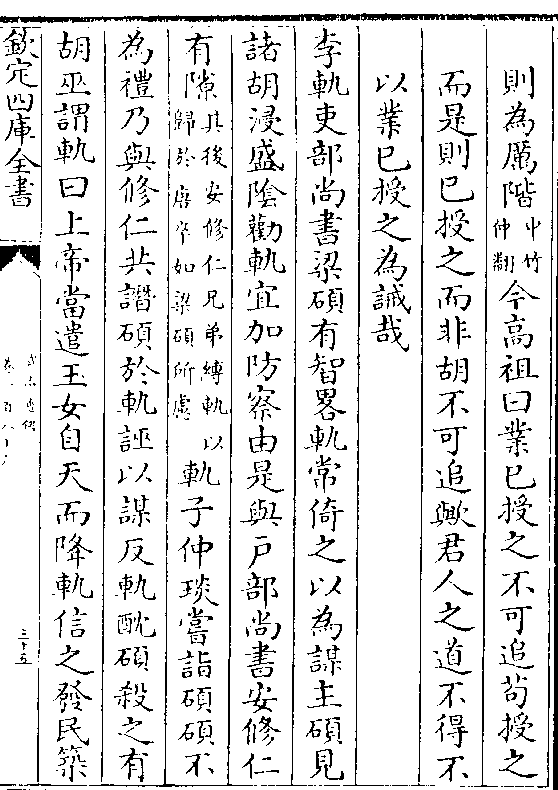 則為厲階中竹仲翻今高祖曰業已授之不可追苟授之
而是則已授之而非胡不可追歟君人之道不得不
以業已授之為誡哉
李軌吏部尚書梁碩有智畧軌常倚之以為謀主碩見
諸胡浸盛陰勸軌宜加防察由是與戸部尚書安修仁
有隙其後安修仁兄弟縛軌以歸於唐卒如梁碩所慮軌子仲琰嘗詣碩碩不
為禮乃與修仁共譖碩於軌誣以謀反軌酖碩殺之有
胡巫謂軌曰上帝當遣玉女自天而降軌信之發民築
欽定四庫全書
三十五